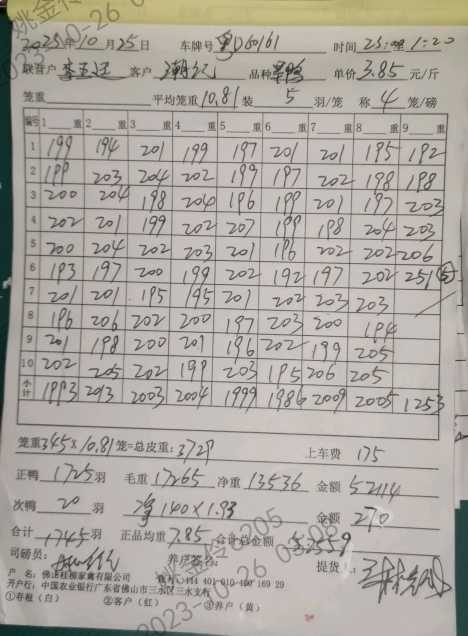 2023年10月25日 车牌号 粤D60161 时间 23:00 1:20
联营户 客户 潮记 品种 单价 3.85 元/斤
笼重 平均笼重 10.81 装 5 羽/笼 称 4 笼/磅
编号 1 重 2 重 3 重 4 重 5 重 6 重 7 重 8 重 9 重
1 199 194 201 199 197 201 201 195 192
2 199 203 204 202 199 197 202 198 198
3 200 204 198 204 196 199 201 197 203
4 202 201 199 202 207 199 198 204 203
5 200 204 202 203 201 196 202 202 206
6 193 197 200 199 202 192 197 202 251
7 201 201 195 195 201 202 203 203
8 196 206 202 200 197 203 200 194
9 201 198 200 201 196 202 199 205
10 202 205 202 199 203 195 206 205
小计 1993 2013 2003 2004 1999 1986 2009 2005 1253
笼重 345 × 10.81 笼=总皮重: 3729 上车费 175
正鸭 1725 羽 毛重 17265 净重 13536 金额 52114
次鸭 20 羽 净 140×1.93 金额 270
合计 1745 羽 正品均重 7.85 合计总金额 52559
司磅员: 养户签名: 提货人:
户 名: 佛山桂柳家禽有限公司 账号: 444 401 010 400 169 29
开户行: 中国农业银行广东省佛山市三水区三水支行
①存根(白) ②客户(红) ③养户(黄)
2023-10-26